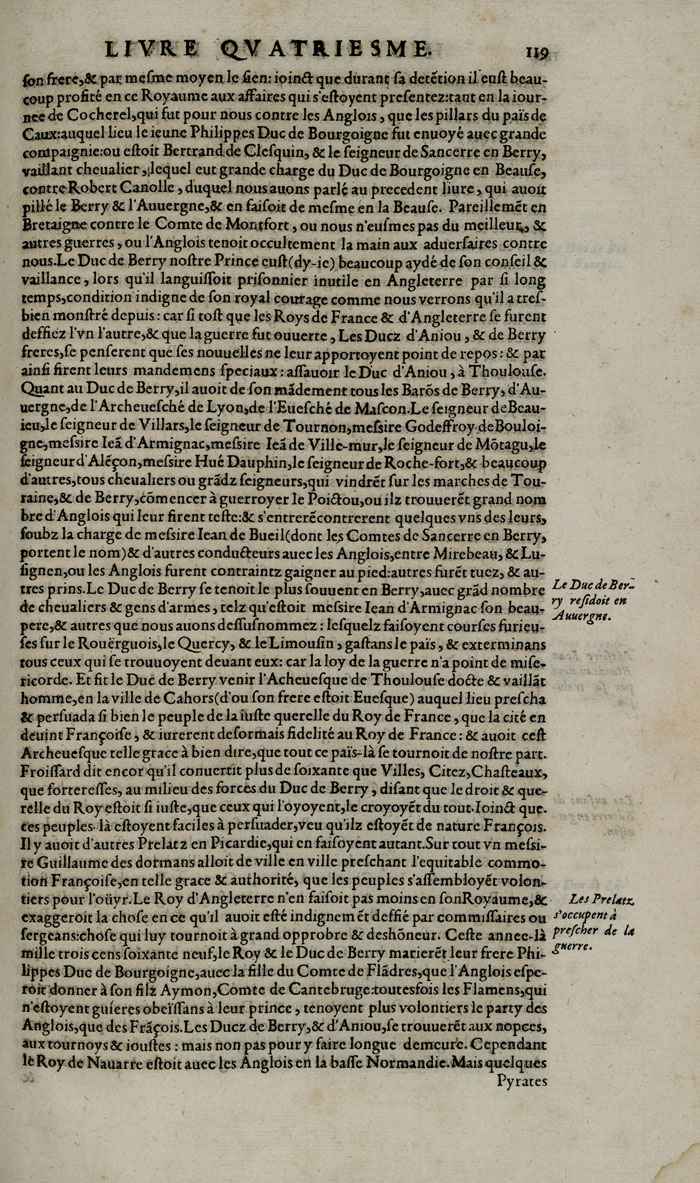 LIVRE QVATRIESME. 119
son frere,& par mesme moyen le sien: ioinct que durant sa detẽtion il eust beau-
coup profité en ce Royaume aux affaires qui s'estoyent presentez:tant en la iour-
nee de Cocherel,qui fut pour nous contre les Anglois, que les pillars du païs de
Caux:auquel lieu le ieune Philippes Duc de Bourgoigne fut enuoyé auec grande
compaignie:ou estoit Bertrand de Clesquin, & le seigneur de Sancerre en Berry,
vaillant cheualier,lequel eut grande charge du Duc de Bourgoigne en Beause,
contre Robert Canolle, duquel nous auons parlé au precedent liure, qui auoit
pillé le Berry & l'Auuergne,& en faisoit de mesme en la Beause. Pareillemẽt en
Bretaigne contre le Comte de Montfort, ou nous n'eusmes pas du meilleur, &
autres guerres, ou l'Anglois tenoit occultement la main aux aduersaires contre
nous.Le Duc de Berry nostre Prince eust(dy-ie) beaucoup aydé de son conseil &
vaillance, lors qu'il languissoit prisonnier inutile en Angleterre par si long
temps,condition indigne de son royal courage comme nous verrons qu'il a tres-
bien monstré depuis: car si tost que les Roys de France & d'Angleterre se furent
deffiez l'vn l'autre,& que la guerre fut ouuerte, Les Ducz d'Aniou, & de Berry
freres,se penserent que ses nouuelles ne leur apportoyent point de repos: & par
ainsi firent leurs mandemens speciaux: assauoir le Duc d'Aniou, à Thoulouse.
Quant au Duc de Berry,il auoit de son mãdement tous les Barõs de Berry, d'Au-
uergne,de l'Archeuesché de Lyon,de l'Euesché de Mascon.Le seigneur de Beau-
ieu,le seigneur de Villars,le seigneur de Tournon,messire Godeffroy de Bouloi-
gne,messire Ieã d'Armignac,messire Ieã de Ville-mur,le seigneur de Mõtagu,le
seigneur d'Alẽçon,messire Hué Dauphin,le seigneur de Roche-fort,& beaucoup
d'autres,tous cheualiers ou grãdz seigneurs,qui vindrẽt sur les marches de Tou-
raine,& de Berry,cõmencer à guerroyer le Poictou,ou ilz trouuerẽt grand nom
bre d'Anglois qui leur firent teste:& s'entrerẽcontrerent quelques vns des leurs,
soubz la charge de messire Iean de Bueil(dont les Comtes de Sancerre en Berry,
portent le nom)& d'autres conducteurs auec les Anglois,entre Mirebeau, & Lu-
signen,ou les Anglois furent contraintz gaigner au pied:autres furẽt tuez, & au-
tres prins.Le Duc de Berry se tenoit le plus souuent en Berry,auec grãd nombre
de cheualiers & gens d'armes, telz qu'estoit messire Iean d'Armignac son beau-
pere,& autres que nous auons dessusnommez: lesquelz faisoyent courses furieu-
ses sur le Rouërguois,le Quercy, & le Limousin, gastans le païs, & exterminans
tous ceux qui se trouuoyent deuant eux: car la loy de la guerre n'a point de mise-
ricorde. Et fit le Duc de Berry venir l'Acheuesque de Thoulouse docte & vaillãt
homme,en la ville de Cahors(d'ou son frere estoit Euesque) auquel lieu prescha
& persuada si bien le peuple de la iuste querelle du Roy de France, que la cité en
deuint Françoise, & iurerent desormais fidelité au Roy de France: & auoit cest
Archeuesque telle grace à bien dire,que tout ce païs-là se tournoit de nostre part.
Froissard dit encor qu'il conuertit plus de soixante que Villes, Citez,Chasteaux,
que forteresses, au milieu des forces du Duc de Berry, disant que le droit & que-
relle du Roy estoit si iuste,que ceux qui l'oyoyent,le croyoyẽt du tout.Ioinct que
ces peuples-là estoyent faciles à persuader,veu qu'ilz estoyẽt de nature François.
Il y auoit d'autres Prelatz en Picardie,qui en faisoyent autant.Sur tout vn messi-
re Guillaume des dormans alloit de ville en ville preschant l'equitable commo-
tion Françoise,en telle grace & authorité, que les peuples s'assembloyẽt volon-
tiers pour l'oüyr.Le Roy d'Angleterre n'en faisoit pas moins en son Royaume,&
exaggeroit la chose en ce qu'il auoit esté indignemẽt deffié par commissaires ou
sergeans:chose qui luy tournoit à grand opprobre & deshõneur. Ceste annee-là
mille trois cens soixante neuf,le Roy & le Duc de Berry marierẽt leur frere Phi-
lippes Duc de Bourgoigne,auec la fille du Comte de Flãdres,que l'Anglois espe-
roit donner à son filz Aymon,Comte de Cantebruge:toutesfois les Flamens,qui
n'estoyent guieres obeïssans à leur prince, tenoyent plus volontiers le party des
Anglois,que des Frãçois.Les Ducz de Berry,& d'Aniou,se trouuerẽt aux nopces,
aux tournoys & ioustes: mais non pas pour y faire longue demeure. Cependant
le Roy de Nauarre estoit auec les Anglois en la basse Normandie.Mais quelques
Pyrates
Le Duc de Ber-
ry residoit en
Auuergne.
Les Prelatz
s'occupent à
prescher de la
guerre.